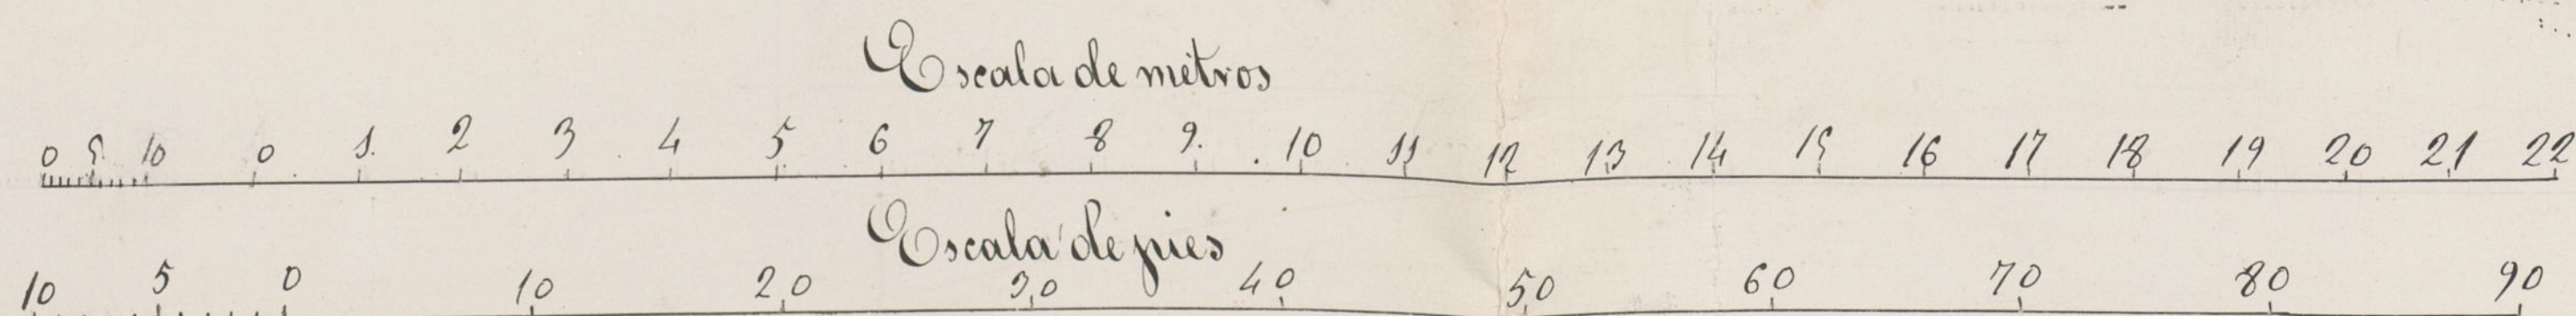 Escala de metros
0 5 10 0 1 2 3 4 5 6 7 8 9 10 11 12 13 14 15 16 17 18 19 20 21 22
Escala de pies
10 5 0 10 20 30 40 50 60 70 80 90